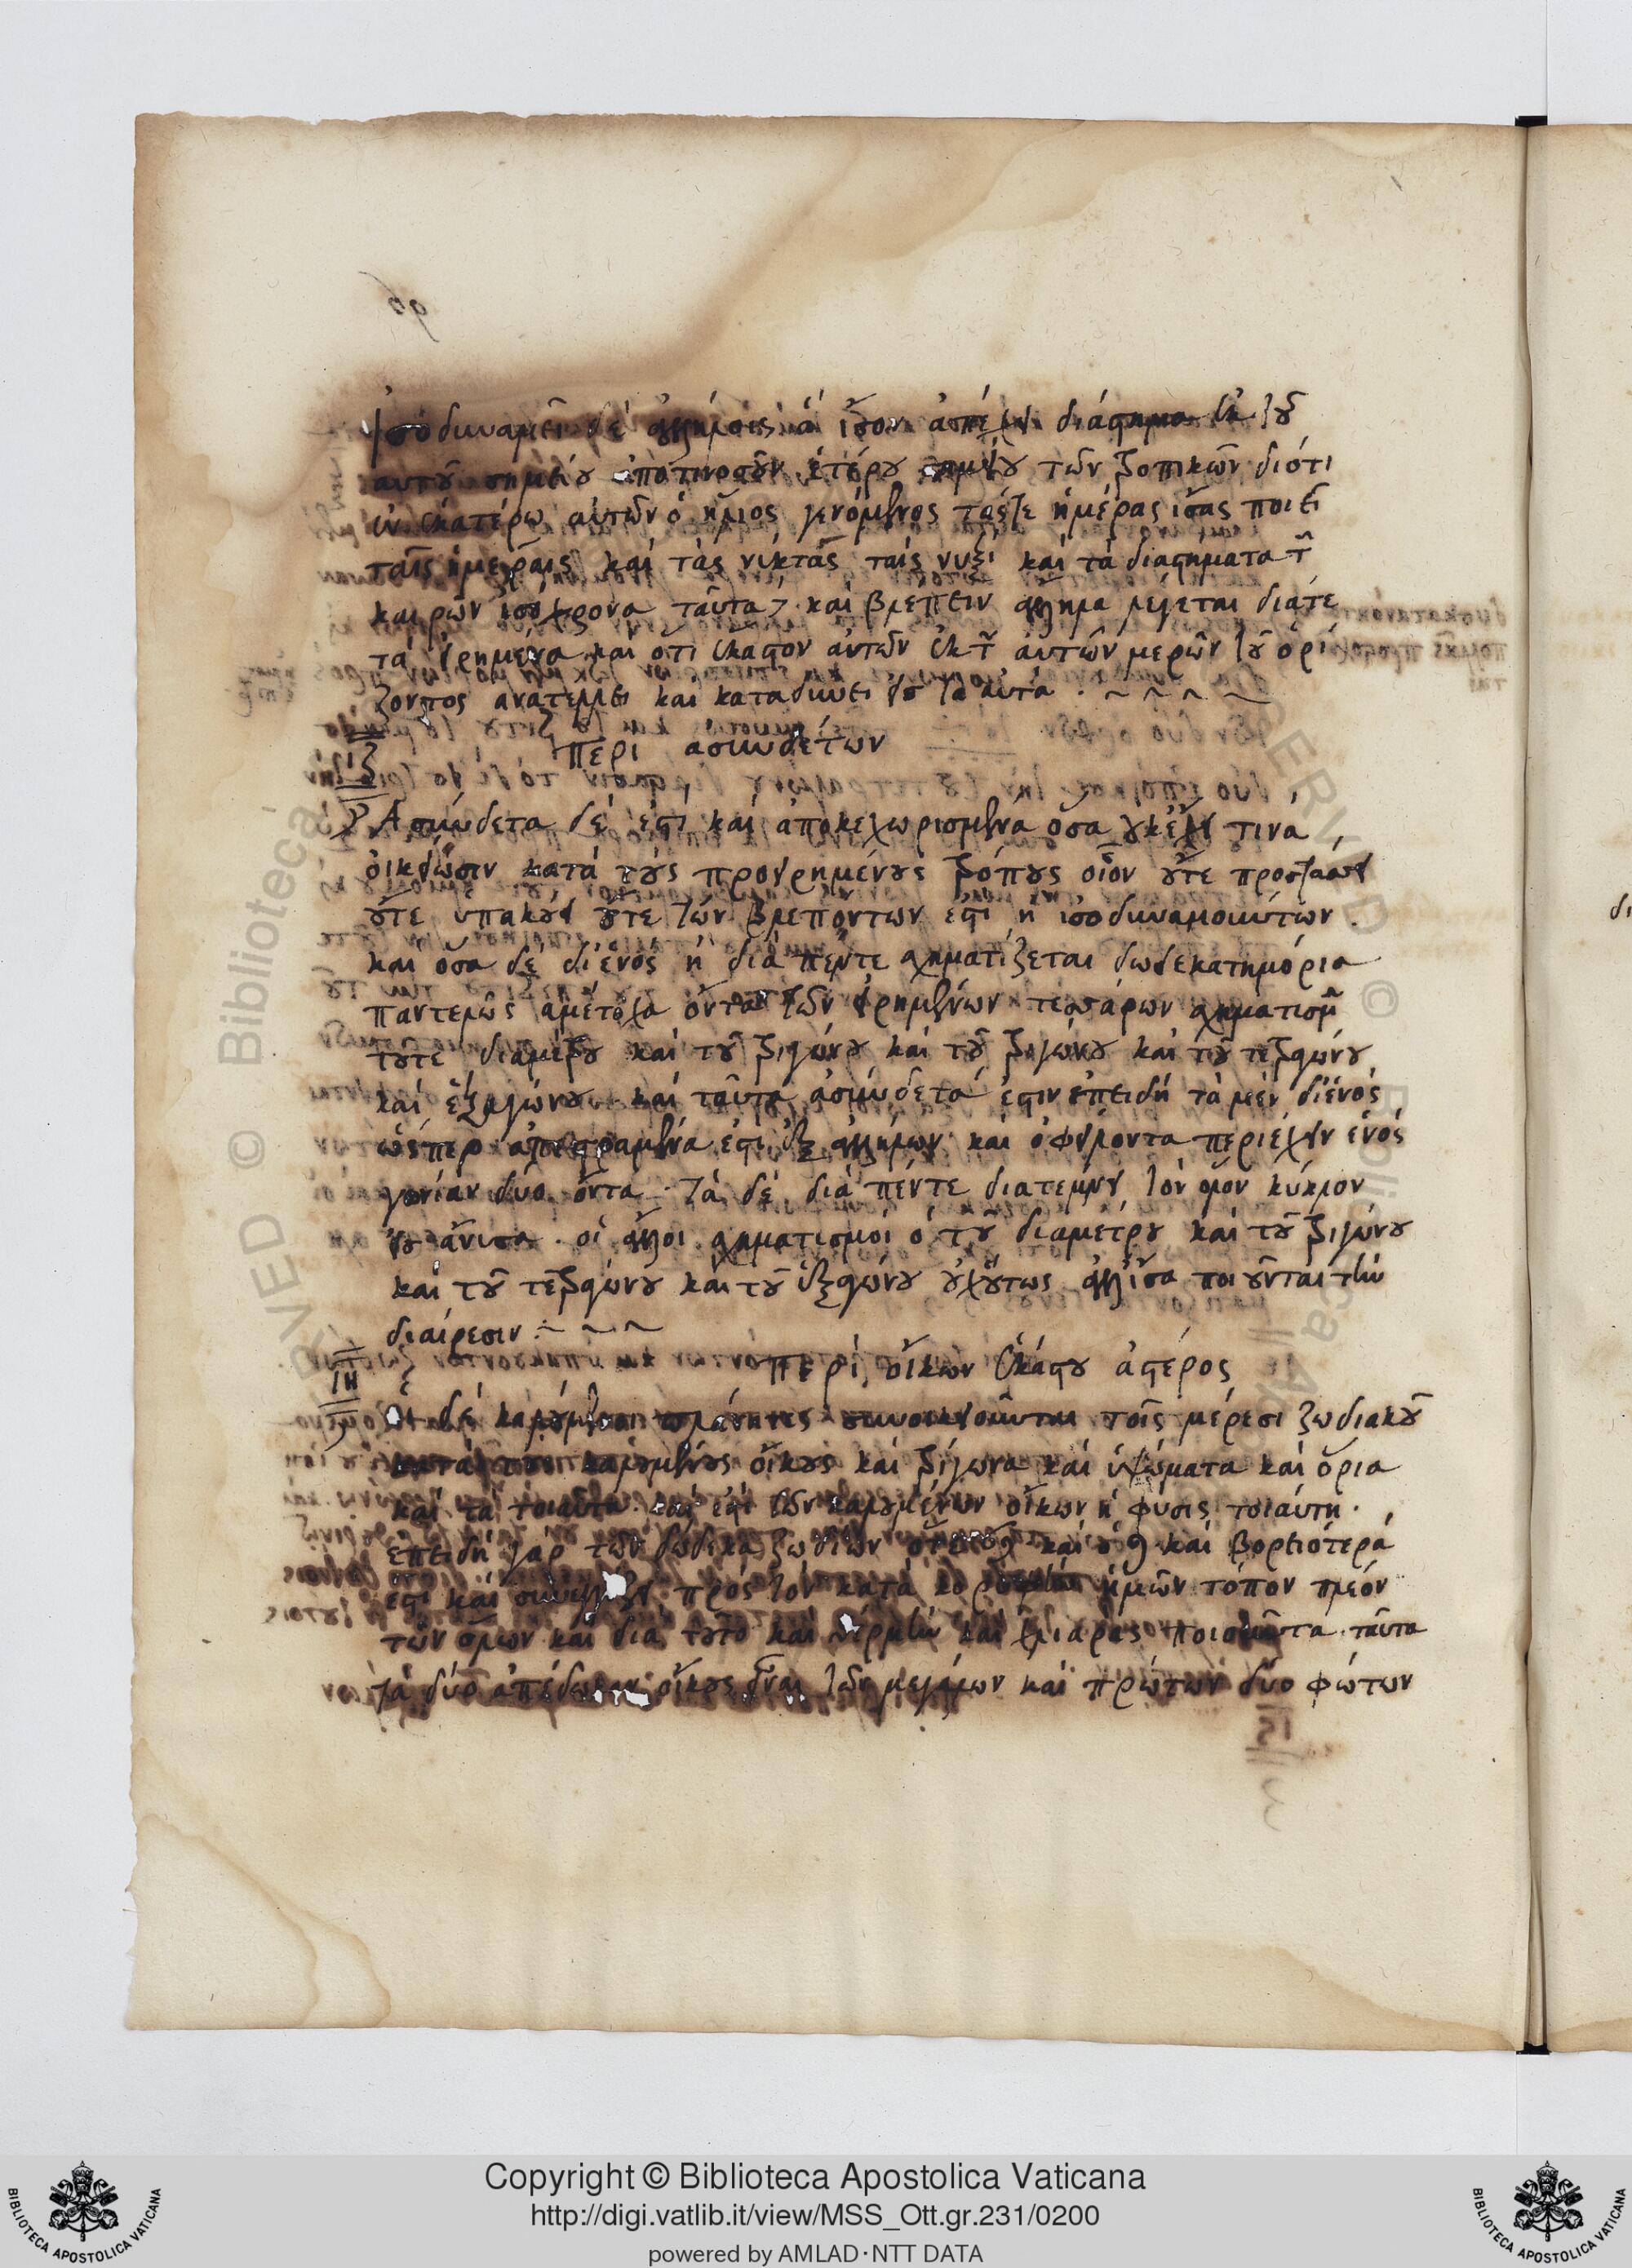 Ἰσοδυναμεῖ δὲ ἀλλήλοις ἃ ἴσον ἀπέχει διάστημα ἐκ τοῦ
αὐτοῦ σημείου ὁποτινοσοῦν ἑτέρου σημείου τῶν τροπικῶν διότι
ἐν ἑκατέρῳ αὐτῶν ὁ ἥλιος γενόμενος τάς τε ἡμέρας ἴσας ποιεῖ
ταῖς ἡμέραις καὶ τὰς νύκτας ταῖς νυξὶ καὶ τὰ διαστήματα τῶν
καιρῶν ἰσόχρονα ταῦτα καὶ βλέπειν ἄλληλα λέγεται διά τε
τὰ εἰρημένα καὶ ὅτι ἕκαστον αὐτῶν ἐκ τῶν αὐτῶν μερῶν τοῦ ὁρί
ζοντος ἀνατέλλει καὶ καταδύνει εἰς τὰ αὐτά · ~ ~ ~ ~
ιζ Περὶ ἀσυνδέτων
Ἀσύνδετα δέ ἐστι καὶ ἀποκεχωρισμένα ὅσα οὐκ ἔχει τινὰ
οἰκείωσιν κατὰ τοὺς προειρημένους τρόπους οἷον οὔτε προστάσσει
οὔτε ὑπακούει οὔτε τῶν βλεπόντων ἐστὶ ἢ ἰσοδυναμούντων .
καὶ ὅσα δὲ δι' ἑνὸς ἢ διὰ πέντε σχηματίζεται δωδεκατημόρια
παντελῶς ἀμέτοχα ὄντα τῶν εἰρημένων τεσσάρων σχηματισμῶν
τοῦ τε διαμέτρου καὶ τοῦ τριγώνου καὶ τοῦ τριγώνου καὶ τοῦ τετραγώνου
καὶ ἑξαγώνου καὶ ταῦτα ἀσύνδετά ἐστιν ἐπειδὴ τὰ μὲν δι' ἑνὸς
ὥσπερ ἀπεστραμμένα ἐστὶ ἐξ ἀλλήλων καὶ ὀφείλοντα περιέχειν ἑνὸς
γωνίαν δύο ὄντα · τὰ δὲ διὰ πέντε διατέμνει τὸν ὅλον κύκλον
εἰς ἄνισα · οἱ ἄλλοι σχηματισμοὶ ὁ τοῦ διαμέτρου καὶ τοῦ τριγώνου
καὶ τοῦ τετραγώνου καὶ τοῦ ἑξαγώνου οὐχ οὕτως ἀλλ' ἴσα ποιοῦνται τὴν
διαίρεσιν · ~ ~ ~
ιη Περὶ οἴκων ἑκάστου ἀστέρος
Οἱ δὲ καλούμενοι πλάνητες συνοικειοῦνται τοῖς μέρεσι ζωδιακοῦ
κατὰ τοὺς καλουμένους οἴκους καὶ τρίγωνα καὶ ὑψώματα καὶ ὅρια
καὶ τὰ τοιαῦτα καὶ ἐστὶ τῶν καλουμένων οἴκων ἡ φύσις τοιαύτη ·
ἐπειδὴ γὰρ τῶν δώδεκα ζωδίων καὶ βορειότερά
ἐστι καὶ συνεγγίζει πρὸς τὸν κατὰ κορυφὴν ἡμῶν τόπον πλέον
τῶν ὅλων καὶ διὰ τοῦτο καὶ θέρμην καὶ ἀλέας ποιοῦντα ταῦτα
τὰ δύο ἀπέδωκαν οἴκους εἶναι τῶν μεγάλων καὶ πρώτων δύο φώτων
Copyright © Biblioteca Apostolica Vaticana
http://digi.vatlib.it/view/MSS_Ott.gr.231/0200
powered by AMLAD·NTT DATA